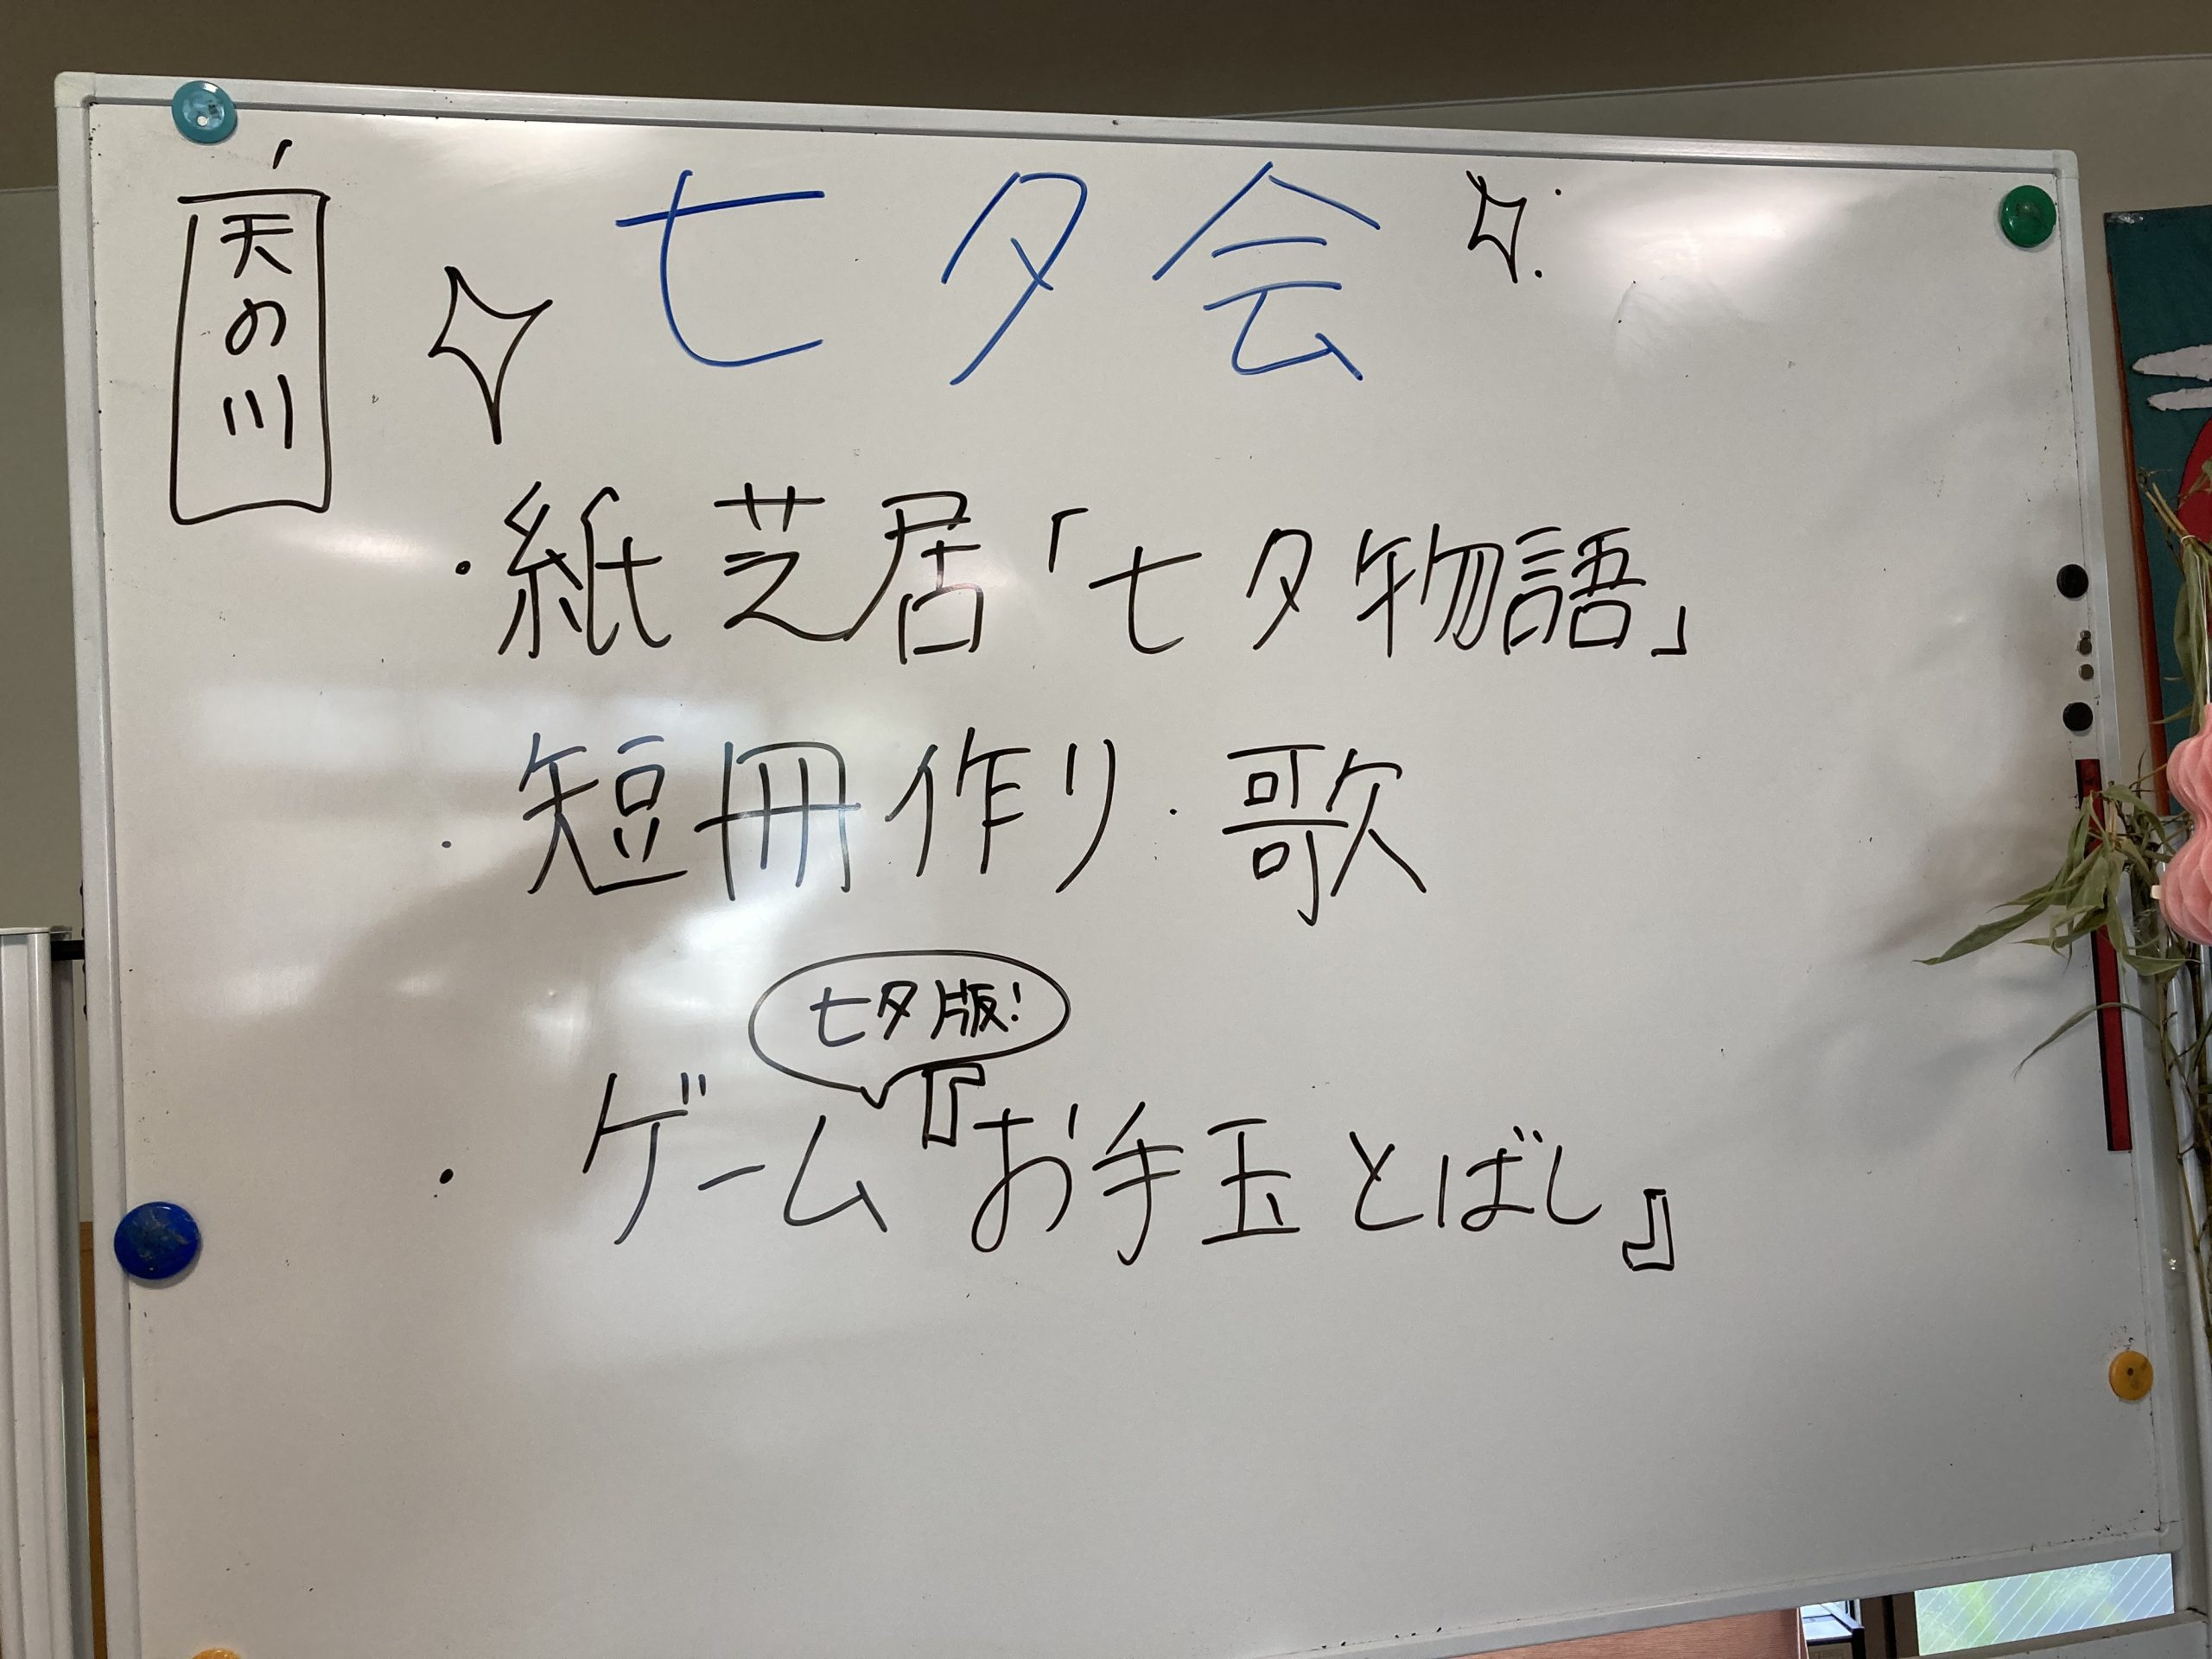 七夕会
天の川
・紙芝居「七夕物語」
・短冊作り・歌
七夕版!
・ゲーム『お手玉とばし』